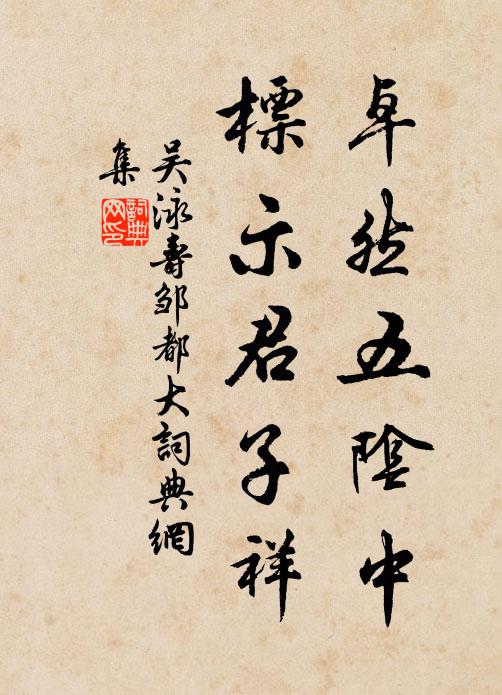 卓然五陰中
標示君子祥
吳泳壽鄒都大詞典網
集
詞典網印